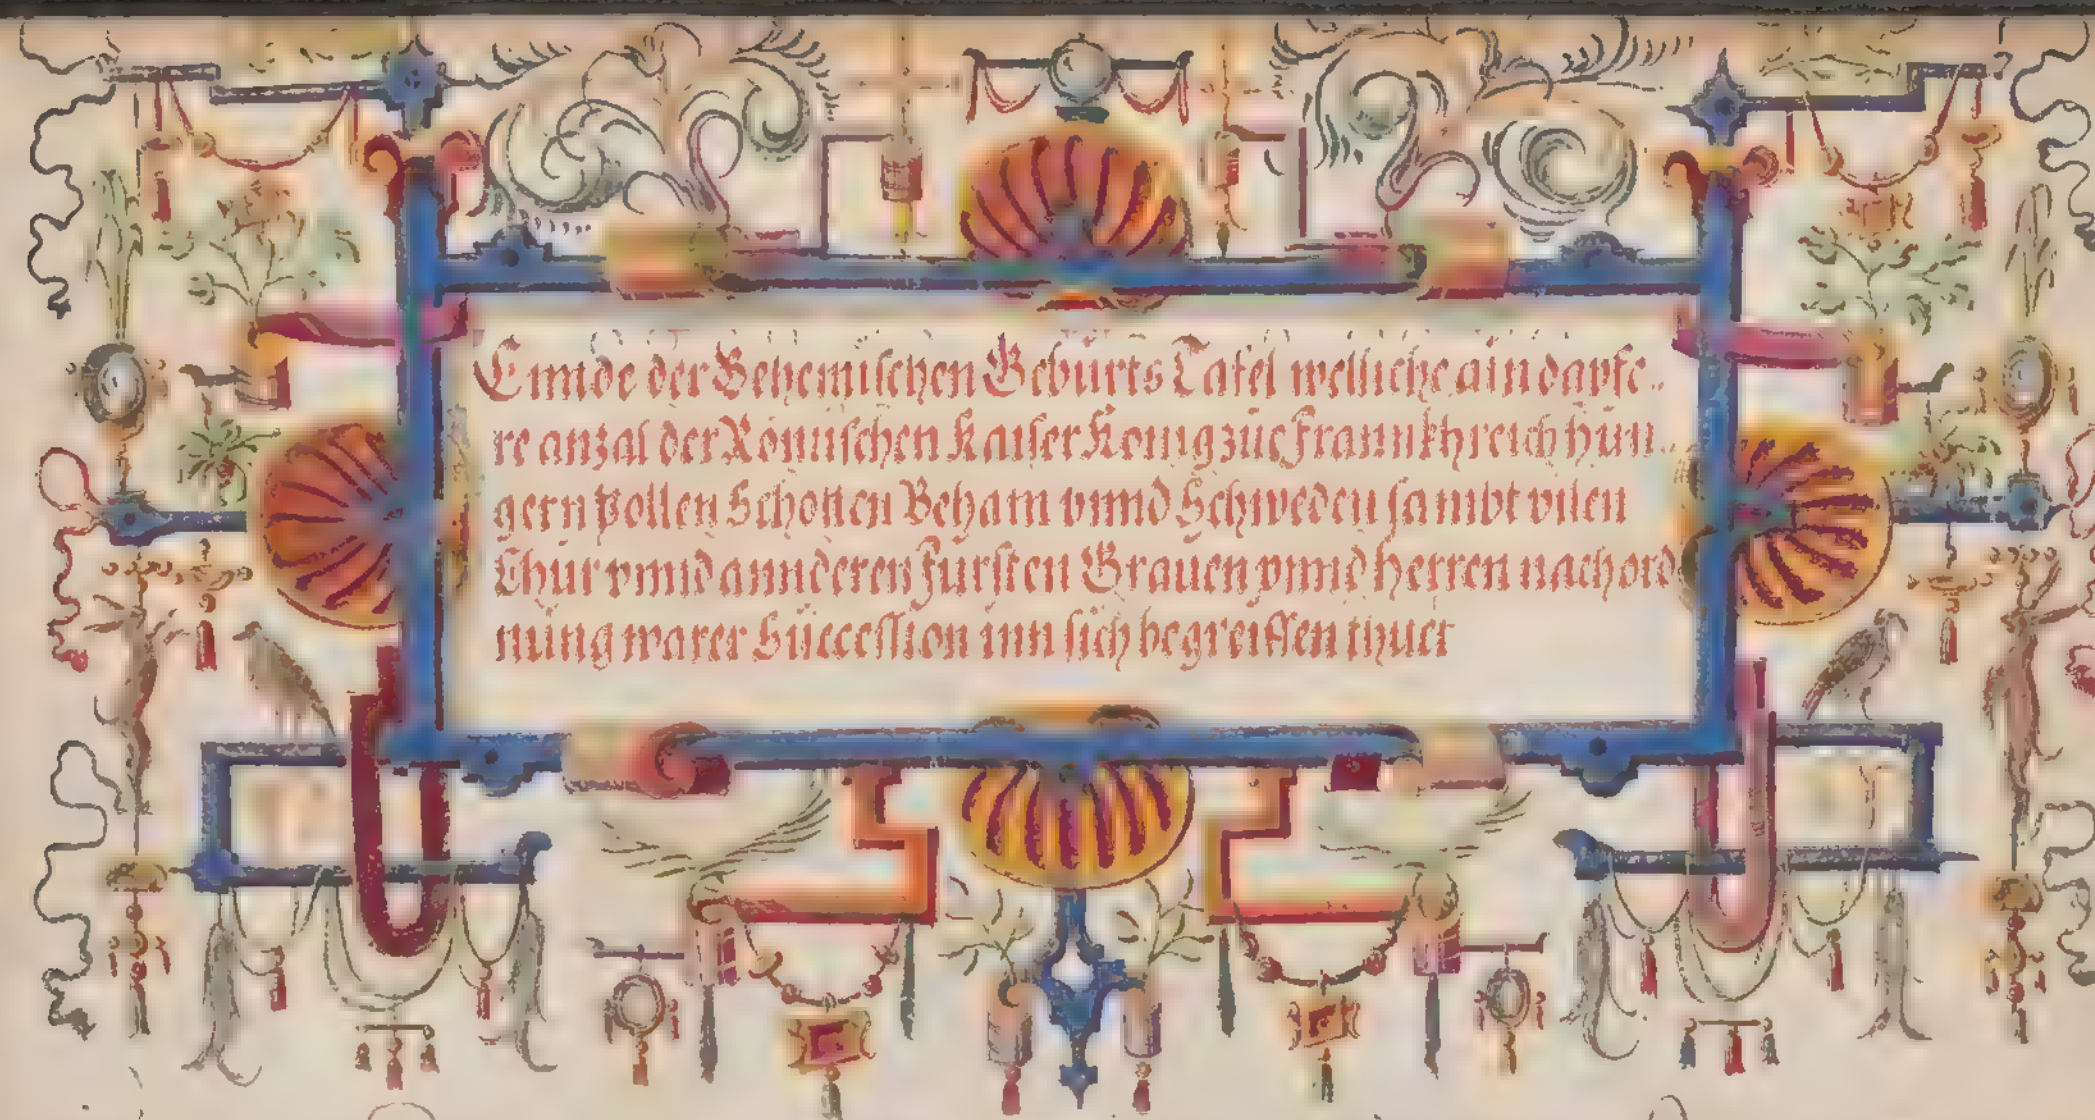 Ennde der Behemischen Geburts Tafel welliche ain dapfe..
re anzal der Römischen Kaiser Konig zue Frannkhreich Hun..
gern Pollen Schotten Beham vnnd Schweden sambt vilen
Chur vnnd annderen Fursten Grauen vnnd Herren nach ord
nung warer Succession inn sich begreiffen thuet